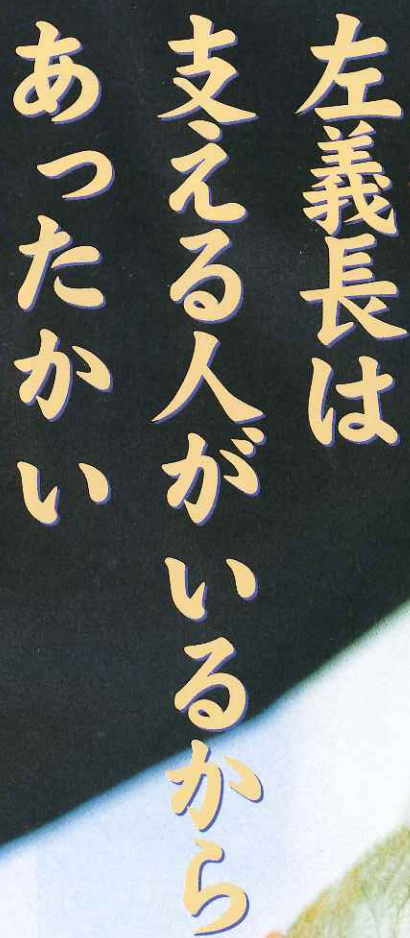 左義長は
支える人がいるから
あったかい